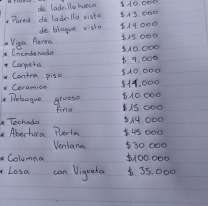 de ladrillo hueco $10.000
* Pared de ladrillo visto $13.000
de bloque visto $14.000
* Viga Aerea $15.000
* Encadenado $10.000
* Carpeta $9.000
* Contra piso $10.000
* Ceramica $11.000
* Reboque grueso $10.000
Fino $15.000
* Techado $14.000
* Abertura Puerta $45.000
Ventana $30.000
* Columna $100.000
* Losa con Vigueta $35.000